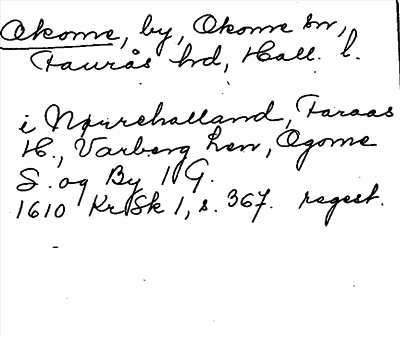 Okome, by, Okome sn,
Faurås hd, Hall. l.
i Nørrehalland, Faraas
H., Varberg Len, Ogome
S. og By 1 G.
1610 Kr Sk 1, s. 367. regest.